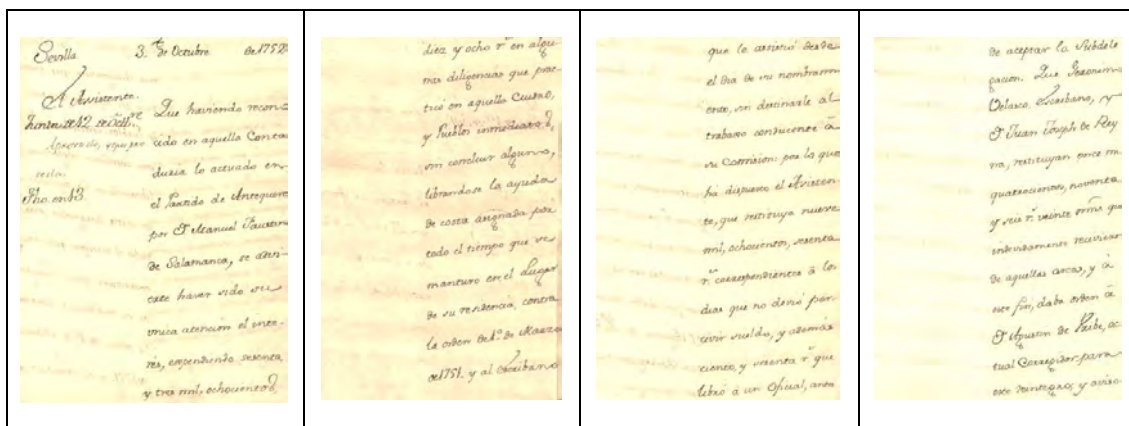 Sevilla 3. de Octubre de 1752
El Assistente.
Junta de 12 de Octt.re
Que haviendo recono-
cido en aquella Conta-
duria lo actuado en
el Partido de Antequera
por Dn Manuel Faustino
de Salamanca, se advi-
erte haver sido su
unica atencion el inte-
res, expendiendo sesenta,
y tres mil, ochocientos,
diez y ocho rs en algu-
nas diligencias que prac-
ticó en aquella Ciudad,
y Pueblos inmediatos,
sin concluir alguna,
librandose la ayuda
de costa asignada por
todo el tiempo que se
mantuvo en el Lugar
de su residencia, contra
la orden de 1º de Marzo
de 1751. y al Escribano
que le assistió desde
el dia de su nombrami-
ento, sin destinarle al
trabaxo conducente â
su Comision: por lo que
ha dispuesto el Assisten-
te, que restituya nueve
mil, ochocientos, sesenta
rs correspondientes â los
dias que no devió per-
civir sueldo, y además
ciento, y treinta rs que
libró a un Oficial, antes
de aceptar la Subdele
gacion. Que Geronimo
Velasco, Escribano, y
Dn Juan Joseph de Rey
na, restituyan once m.
quatrocientos, noventa
y seis rs veinte mrs que
indevidamente recivieron
de aquellas arcas, y â
este fin, daba orden â
Dn Agustin de Uribe, ac
tual Corregidor para
este reintegro; y aviso